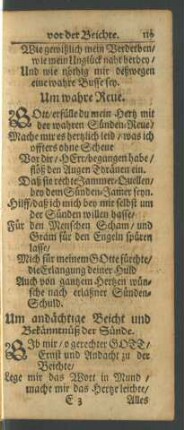 vor der Beichte.
Wie gewißlich mein Verderben/
wie mein Unglück nahe herbey/
Und wie nöthig mir deßwegen
eine wahre Busse sey.
Um wahre Reue.
GOtt/ erfülle du mein Hertz mit
der wahren Sünden-Reue/
Mache mir es hertzlich leid/ was ich
offters ohne Scheue
Vor dir/ HErr/ begangen habe/
flöß den Augen Thränen ein.
Daß sie rechte Jammer-Quellen/
bey dem Sünden-Jamer seyn.
Hilff/ daß ich mich bey mir selbst um
der Sünden willen hasse/
Für den Menschen Scham/ und
Gram für den Engeln spüren
lasse/
Mich für meinem GOtte fürchte/
die Erlangung deiner Huld
Auch von gantzem Hertzen wün-
sche nach erlaßner Sünden-
Schuld.
Um andächtige Beicht und
Bekänntnüß der Sünde.
Gib mir/ o gerechter GOTT/
Ernst und Andacht zu der
Beichte/
Lege mir das Wort in Mund/
macht mir das Hertze leichte/
E 3 Alles